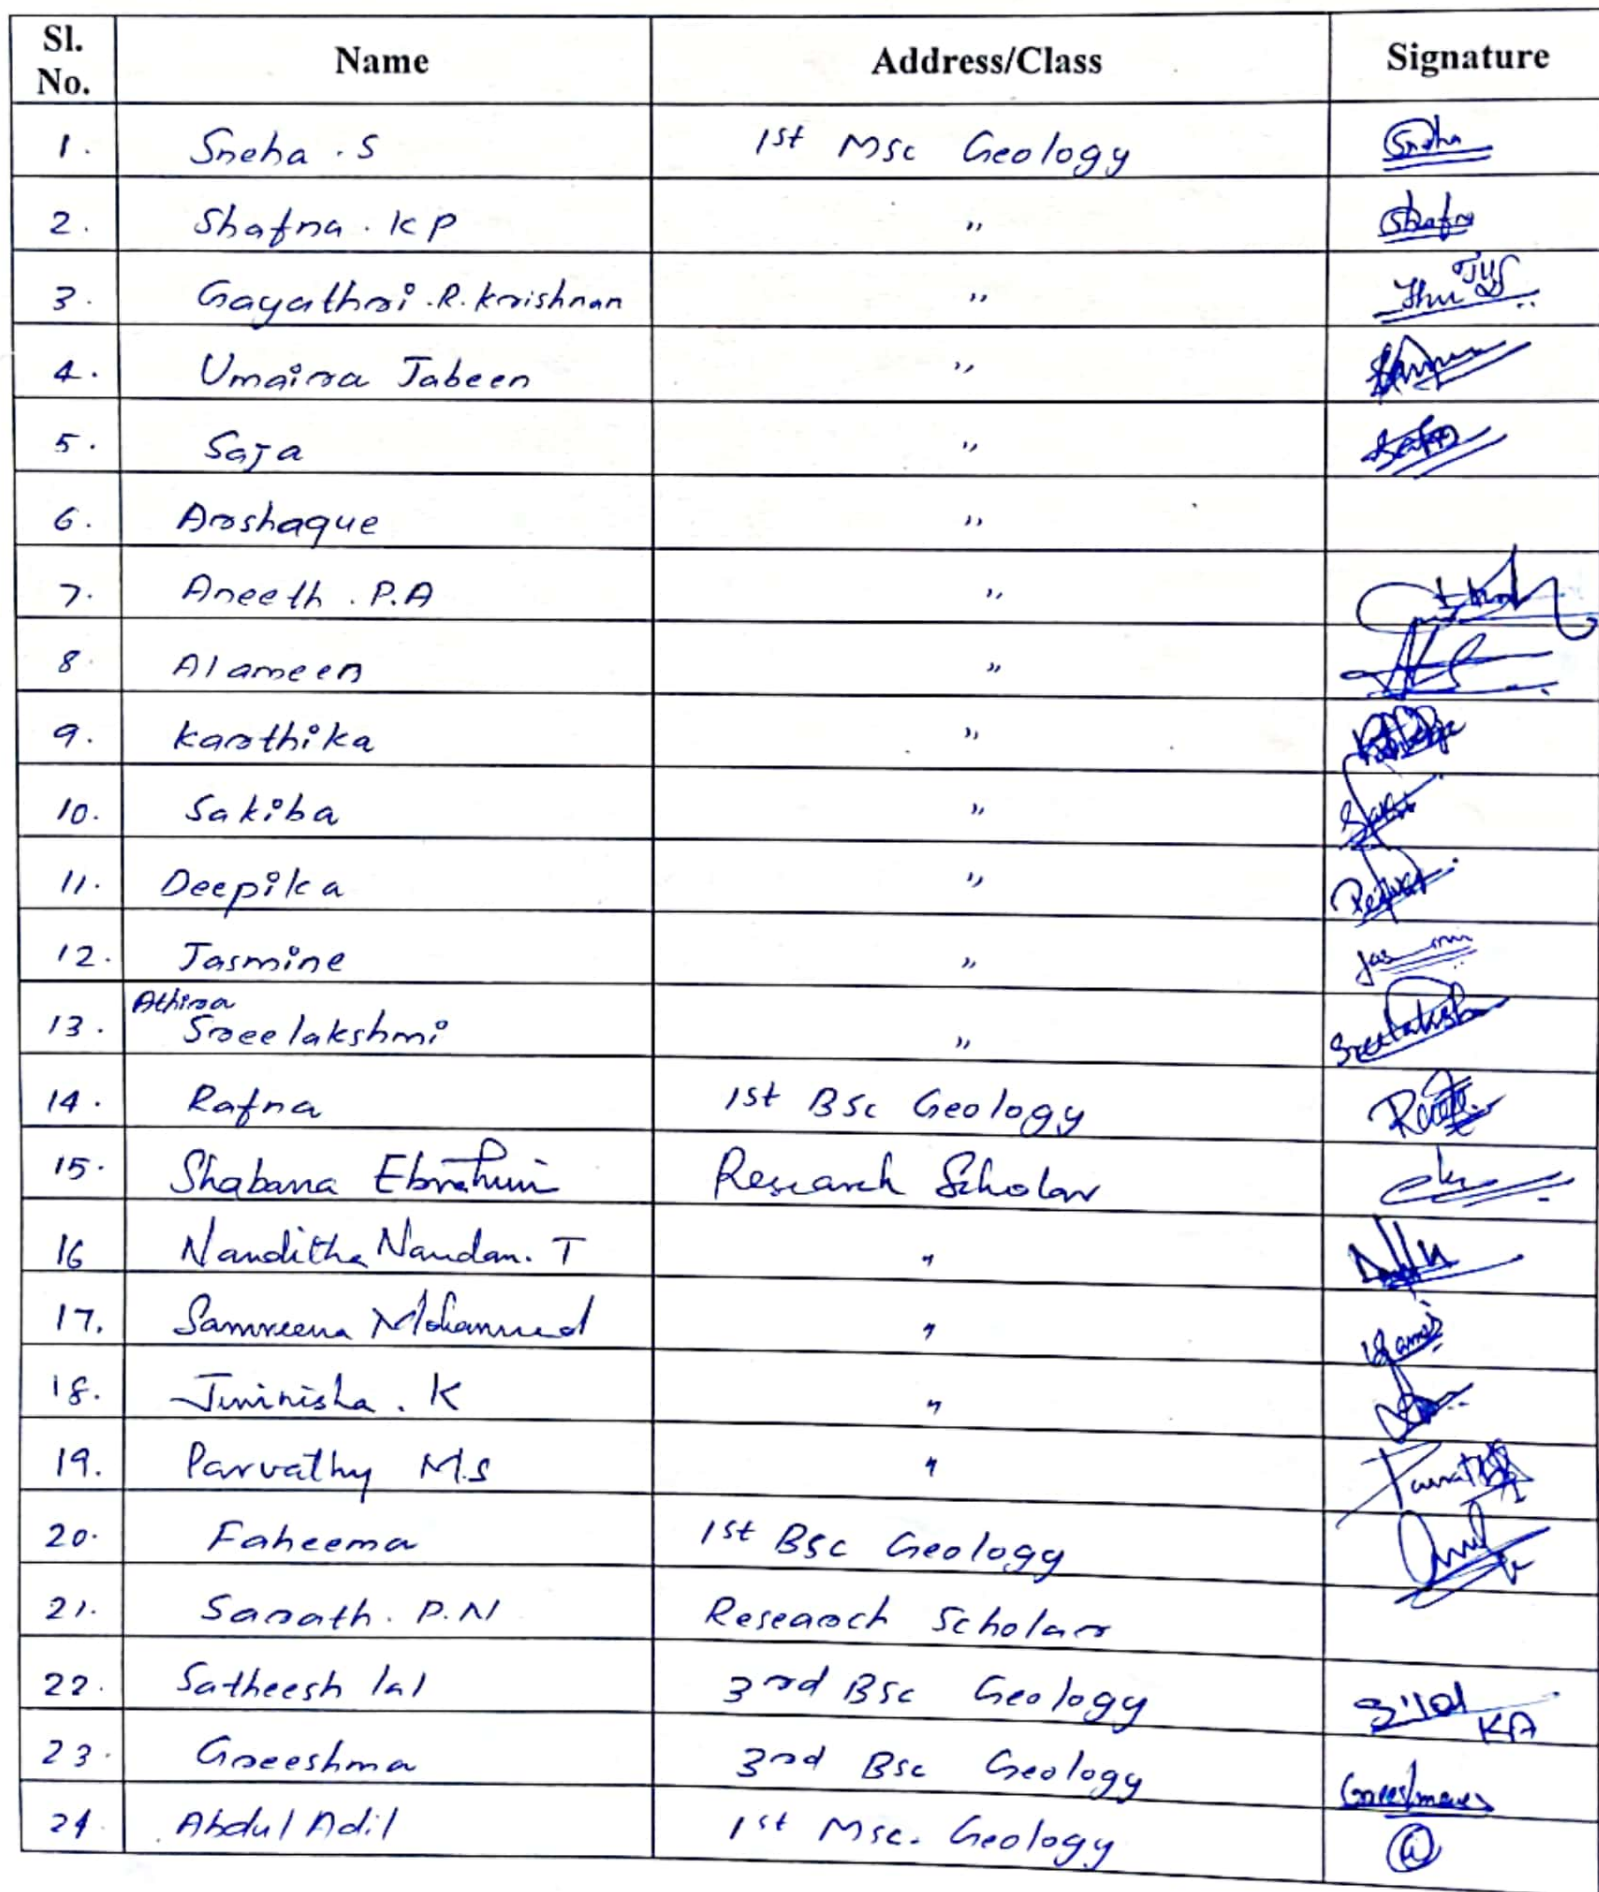 Sl. No. Name Address/Class Signature
1. Sneha . S 1st Msc Geology Sneha
2. Shafna . K P ,, Shafna
3. Gayathri .R. Krishnan ,,
4. Umaira Jabeen ,,
5. Saja ,,
6. Arshaque ,,
7. Aneeth . P.A ,,
8. Alameen ,,
9. Karthika ,,
10. Sakiba ,,
11. Deepika ,,
12. Jasmine ,,
Athira
13. Sreelakshmi ,, Sreelakshmi
14. Rafna 1st BSc Geology
15. Shabana Ebrahim Research Scholar
16 Nanditha Nandan. T "
17. Samreena Mohammed "
18. Jininisha . K "
19. Parvathy M.S "
20. Faheema 1st BSc Geology
21. Sarath. P.N Research Scholar
22. Satheesh lal 3rd BSc Geology
23. Greeshma 3rd BSc Geology
24. Abdul Adil 1st Msc. Geology